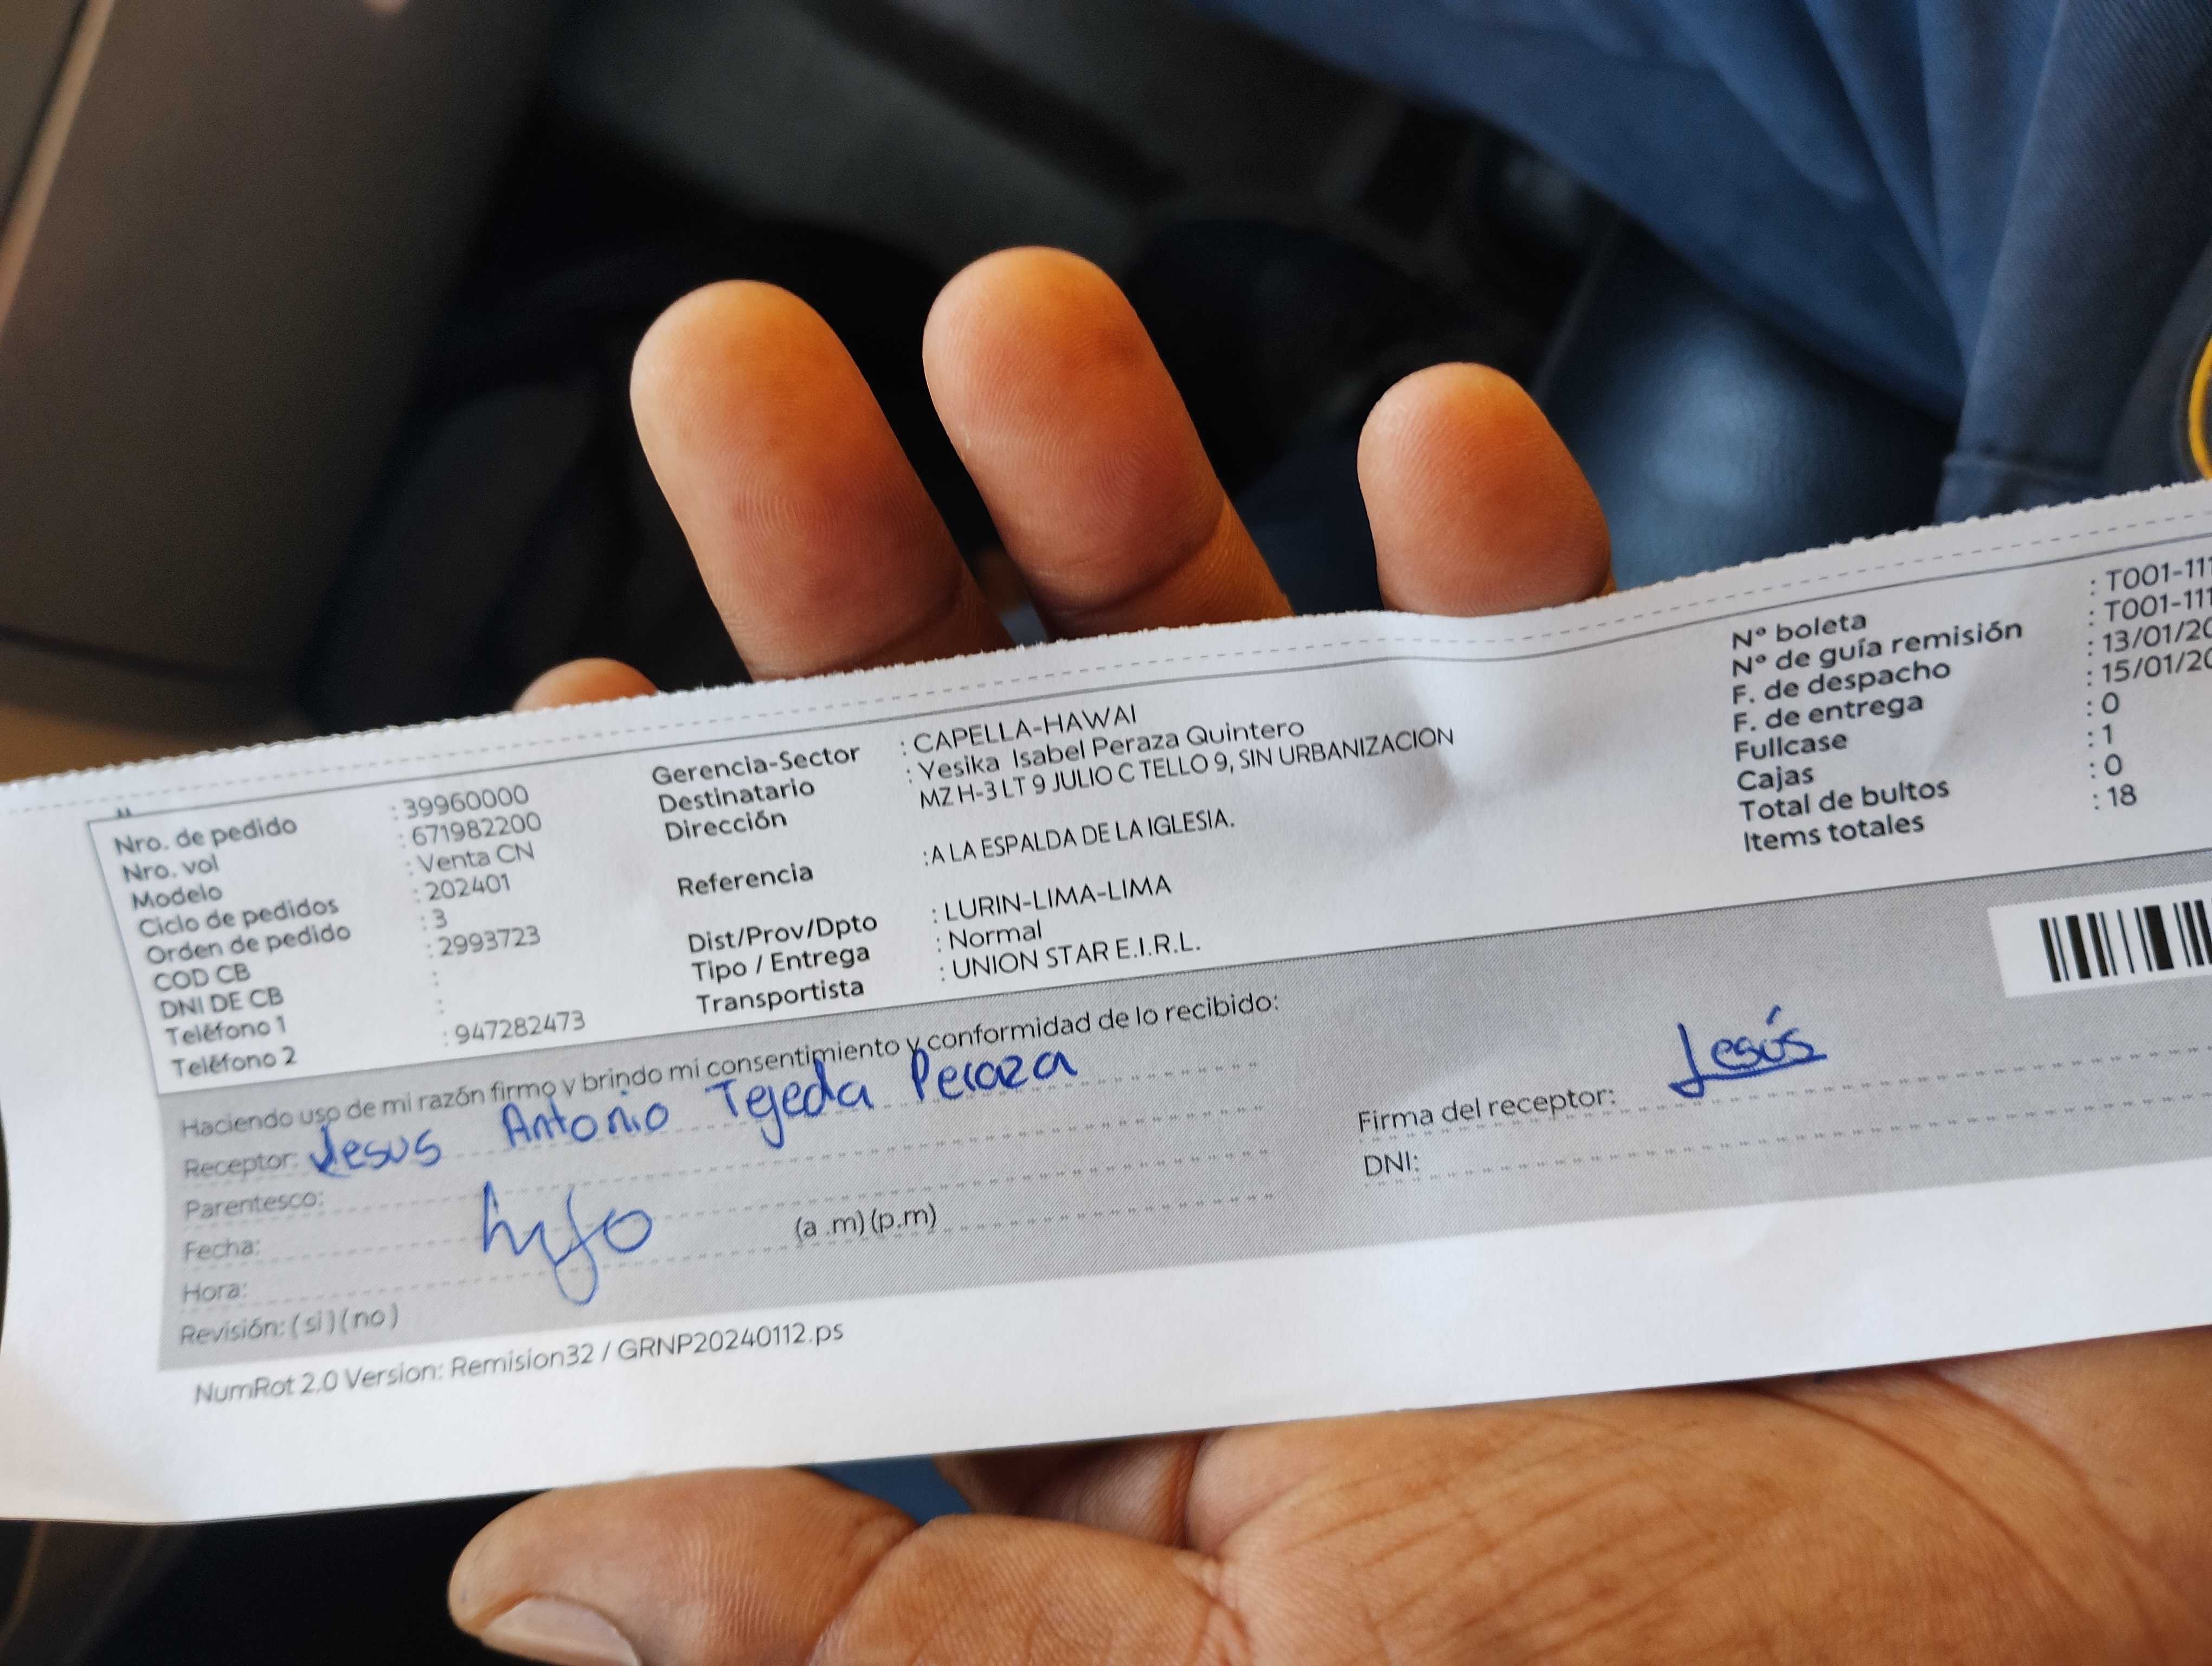 Nro. de pedido : 39960000
Nro. vol : 671982200
Modelo : Venta CN
Ciclo de pedidos : 202401
Orden de pedido : 3
COD CB : 2993723
DNI DE CB :
Teléfono 1 :
Teléfono 2 : 947282473
Gerencia-Sector : CAPELLA-HAWAI
Destinatario : Yesika Isabel Peraza Quintero
Dirección MZ H-3 LT 9 JULIO C TELLO 9, SIN URBANIZACION
Referencia :A LA ESPALDA DE LA IGLESIA.
Dist/Prov/Dpto : LURIN-LIMA-LIMA
Tipo / Entrega : Normal
Transportista : UNION STAR E.I.R.L.
Nº boleta : T001-111
Nº de guía remisión : T001-111
F. de despacho : 13/01/20
F. de entrega : 15/01/20
Fullcase : 0
Cajas : 1
Total de bultos : 0
Items totales : 18
Haciendo uso de mi razón firmo y brindo mi consentimiento y conformidad de lo recibido:
Receptor: Jesus Antonio Tejeda Peraza
Parentesco:
Fecha: hijo
Hora: (a .m) (p.m)
Revisión: ( si ) ( no )
Firma del receptor: Jesús
DNI:
NumRot 2.0 Version: Remision32 / GRNP20240112.ps